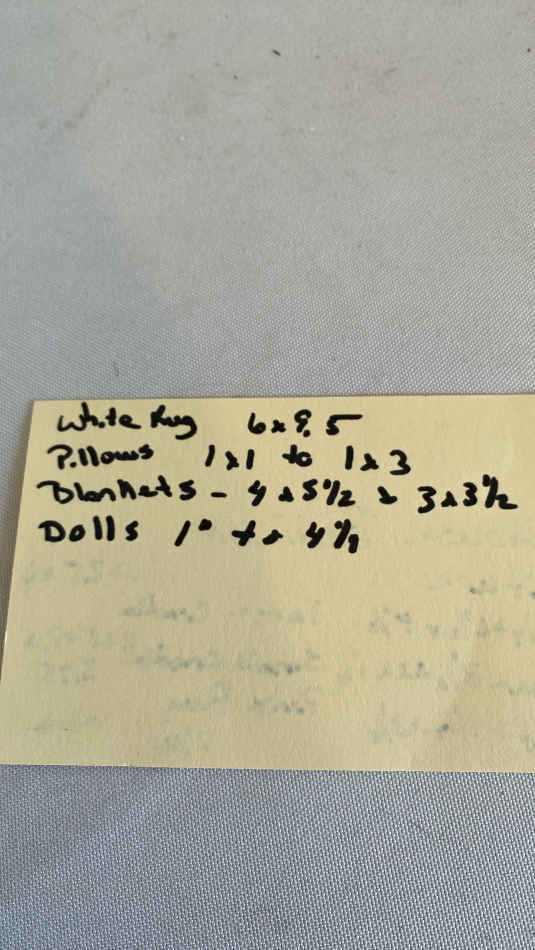 White Rug 6x9.5
Pillows 1x1 to 1x3
Blankets - 4x5½ x 3x3½
Dolls 1" to 4½